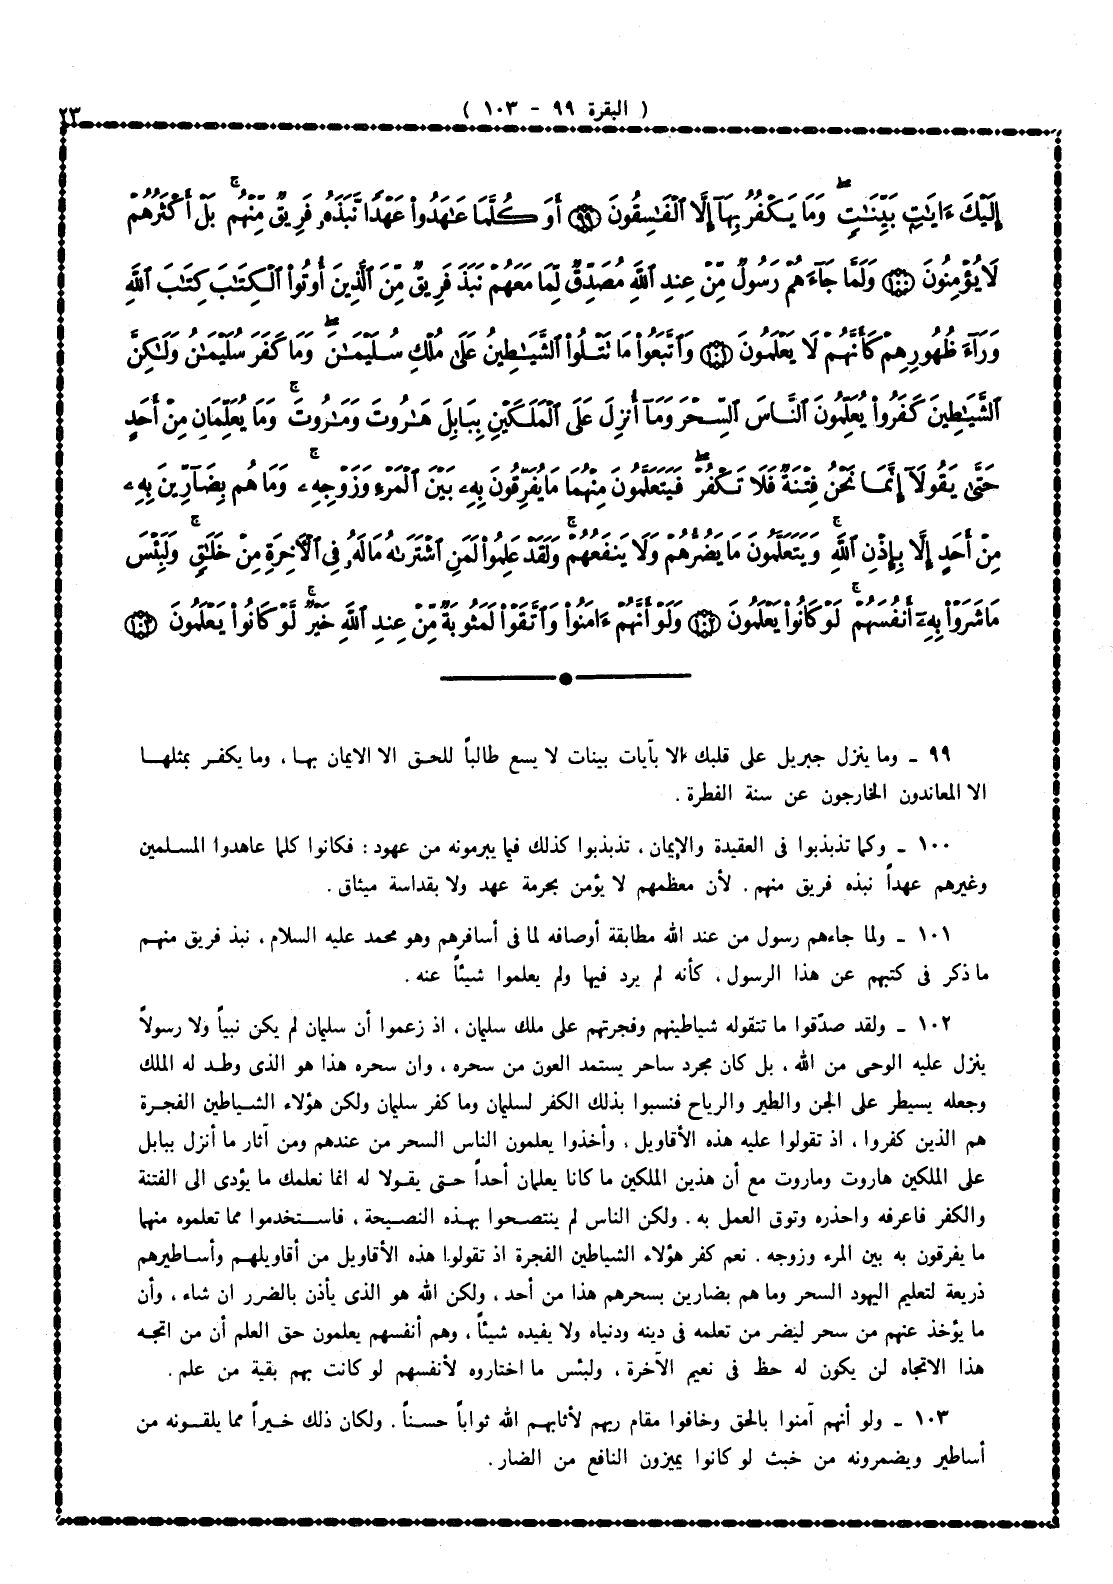 ( البقرة ٩٩ - ١٠٣ )
٢٣
إِلَيْكَ ءَايَٰتٍ بَيِّنَٰتٍ ۖ وَمَا يَكْفُرُ بِهَآ إِلَّا ٱلْفَٰسِقُونَ ﴿٩٩﴾ أَوَكُلَّمَا عَٰهَدُوا۟ عَهْدًا نَّبَذَهُۥ فَرِيقٌ مِّنْهُم ۚ بَلْ أَكْثَرُهُمْ
لَا يُؤْمِنُونَ ﴿١٠٠﴾ وَلَمَّا جَآءَهُمْ رَسُولٌ مِّنْ عِندِ ٱللَّهِ مُصَدِّقٌ لِّمَا مَعَهُمْ نَبَذَ فَرِيقٌ مِّنَ ٱلَّذِينَ أُوتُوا۟ ٱلْكِتَٰبَ كِتَٰبَ ٱللَّهِ
وَرَآءَ ظُهُورِهِمْ كَأَنَّهُمْ لَا يَعْلَمُونَ ﴿١٠١﴾ وَٱتَّبَعُوا۟ مَا تَتْلُوا۟ ٱلشَّيَٰطِينُ عَلَىٰ مُلْكِ سُلَيْمَٰنَ ۖ وَمَا كَفَرَ سُلَيْمَٰنُ وَلَٰكِنَّ
ٱلشَّيَٰطِينَ كَفَرُوا۟ يُعَلِّمُونَ ٱلنَّاسَ ٱلسِّحْرَ وَمَآ أُنزِلَ عَلَى ٱلْمَلَكَيْنِ بِبَابِلَ هَٰرُوتَ وَمَٰرُوتَ ۚ وَمَا يُعَلِّمَانِ مِنْ أَحَدٍ
حَتَّىٰ يَقُولَآ إِنَّمَا نَحْنُ فِتْنَةٌ فَلَا تَكْفُرْ ۖ فَيَتَعَلَّمُونَ مِنْهُمَا مَا يُفَرِّقُونَ بِهِۦ بَيْنَ ٱلْمَرْءِ وَزَوْجِهِۦ ۚ وَمَا هُم بِضَآرِّينَ بِهِۦ
مِنْ أَحَدٍ إِلَّا بِإِذْنِ ٱللَّهِ ۚ وَيَتَعَلَّمُونَ مَا يَضُرُّهُمْ وَلَا يَنفَعُهُمْ ۚ وَلَقَدْ عَلِمُوا۟ لَمَنِ ٱشْتَرَىٰهُ مَا لَهُۥ فِى ٱلْءَاخِرَةِ مِنْ خَلَٰقٍ ۚ وَلَبِئْسَ
مَا شَرَوْا۟ بِهِۦٓ أَنفُسَهُمْ ۚ لَوْ كَانُوا۟ يَعْلَمُونَ ﴿١٠٢﴾ وَلَوْ أَنَّهُمْ ءَامَنُوا۟ وَٱتَّقَوْا۟ لَمَثُوبَةٌ مِّنْ عِندِ ٱللَّهِ خَيْرٌ ۖ لَّوْ كَانُوا۟ يَعْلَمُونَ ﴿١٠٣﴾
٩٩ ـ وما ينزل جبريل على قلبك إلا بآيات بينات لا يسع طالباً للحق الا الايمان بها ، وما يكفر بمثلها
الا المعاندون الخارجون عن سنة الفطرة .
١٠٠ ـ وكما تذبذبوا فى العقيدة والإيمان ، تذبذبوا كذلك فيما يبرمونه من عهود : فكانوا كلما عاهدوا المسلمين
وغيرهم عهداً نبذه فريق منهم . لأن معظمهم لا يؤمن بحرمة عهد ولا بقداسة ميثاق .
١٠١ ـ ولما جاءهم رسول من عند الله مطابقة أوصافه لما فى أسافرهم وهو محمد عليه السلام ، نبذ فريق منهم
ما ذكر فى كتبهم عن هذا الرسول ، كأنه لم يرد فيها ولم يعلموا شيئاً عنه .
١٠٢ ـ ولقد صدّقوا ما تتقوله شياطينهم وفجرتهم على ملك سليمان ، اذ زعموا أن سليمان لم يكن نبياً ولا رسولاً
ينزل عليه الوحى من الله ، بل كان مجرد ساحر يستمد العون من سحره ، وان سحره هذا هو الذى وطد له الملك
وجعله يسيطر على الجن والطير والرياح فنسبوا بذلك الكفر لسليمان وما كفر سليمان ولكن هؤلاء الشياطين الفجرة
هم الذين كفروا ، اذ تقولوا عليه هذه الأقاويل ، وأخذوا يعلمون الناس السحر من عندهم ومن آثار ما أنزل ببابل
على الملكين هاروت وماروت مع أن هذين الملكين ما كانا يعلمان أحداً حتى يقولا له انما نعلمك ما يؤدى الى الفتنة
والكفر فاعرفه واحذره وتوق العمل به . ولكن الناس لم ينتصحوا بهذه النصيحة ، فاستخدموا مما تعلموه منهما
ما يفرقون به بين المرء وزوجه . نعم كفر هؤلاء الشياطين الفجرة اذ تقولوا هذه الأقاويل من أقاويلهم وأساطيرهم
ذريعة لتعليم اليهود السحر وما هم بضارين بسحرهم هذا من أحد ، ولكن الله هو الذى يأذن بالضرر ان شاء ، وأن
ما يؤخذ عنهم من سحر ليضر من تعلمه فى دينه ودنياه ولا يفيده شيئاً ، وهم أنفسهم يعلمون حق العلم أن من اتجه
هذا الاتجاه لن يكون له حظ فى نعيم الآخرة ، ولبئس ما اختاروه لأنفسهم لو كانت بهم بقية من علم .
١٠٣ ـ ولو أنهم آمنوا بالحق وخافوا مقام ربهم لأثابهم الله ثواباً حسناً . ولكان ذلك خيراً مما يلقونه من
أساطير ويضمرونه من خبث لو كانوا يميزون النافع من الضار .